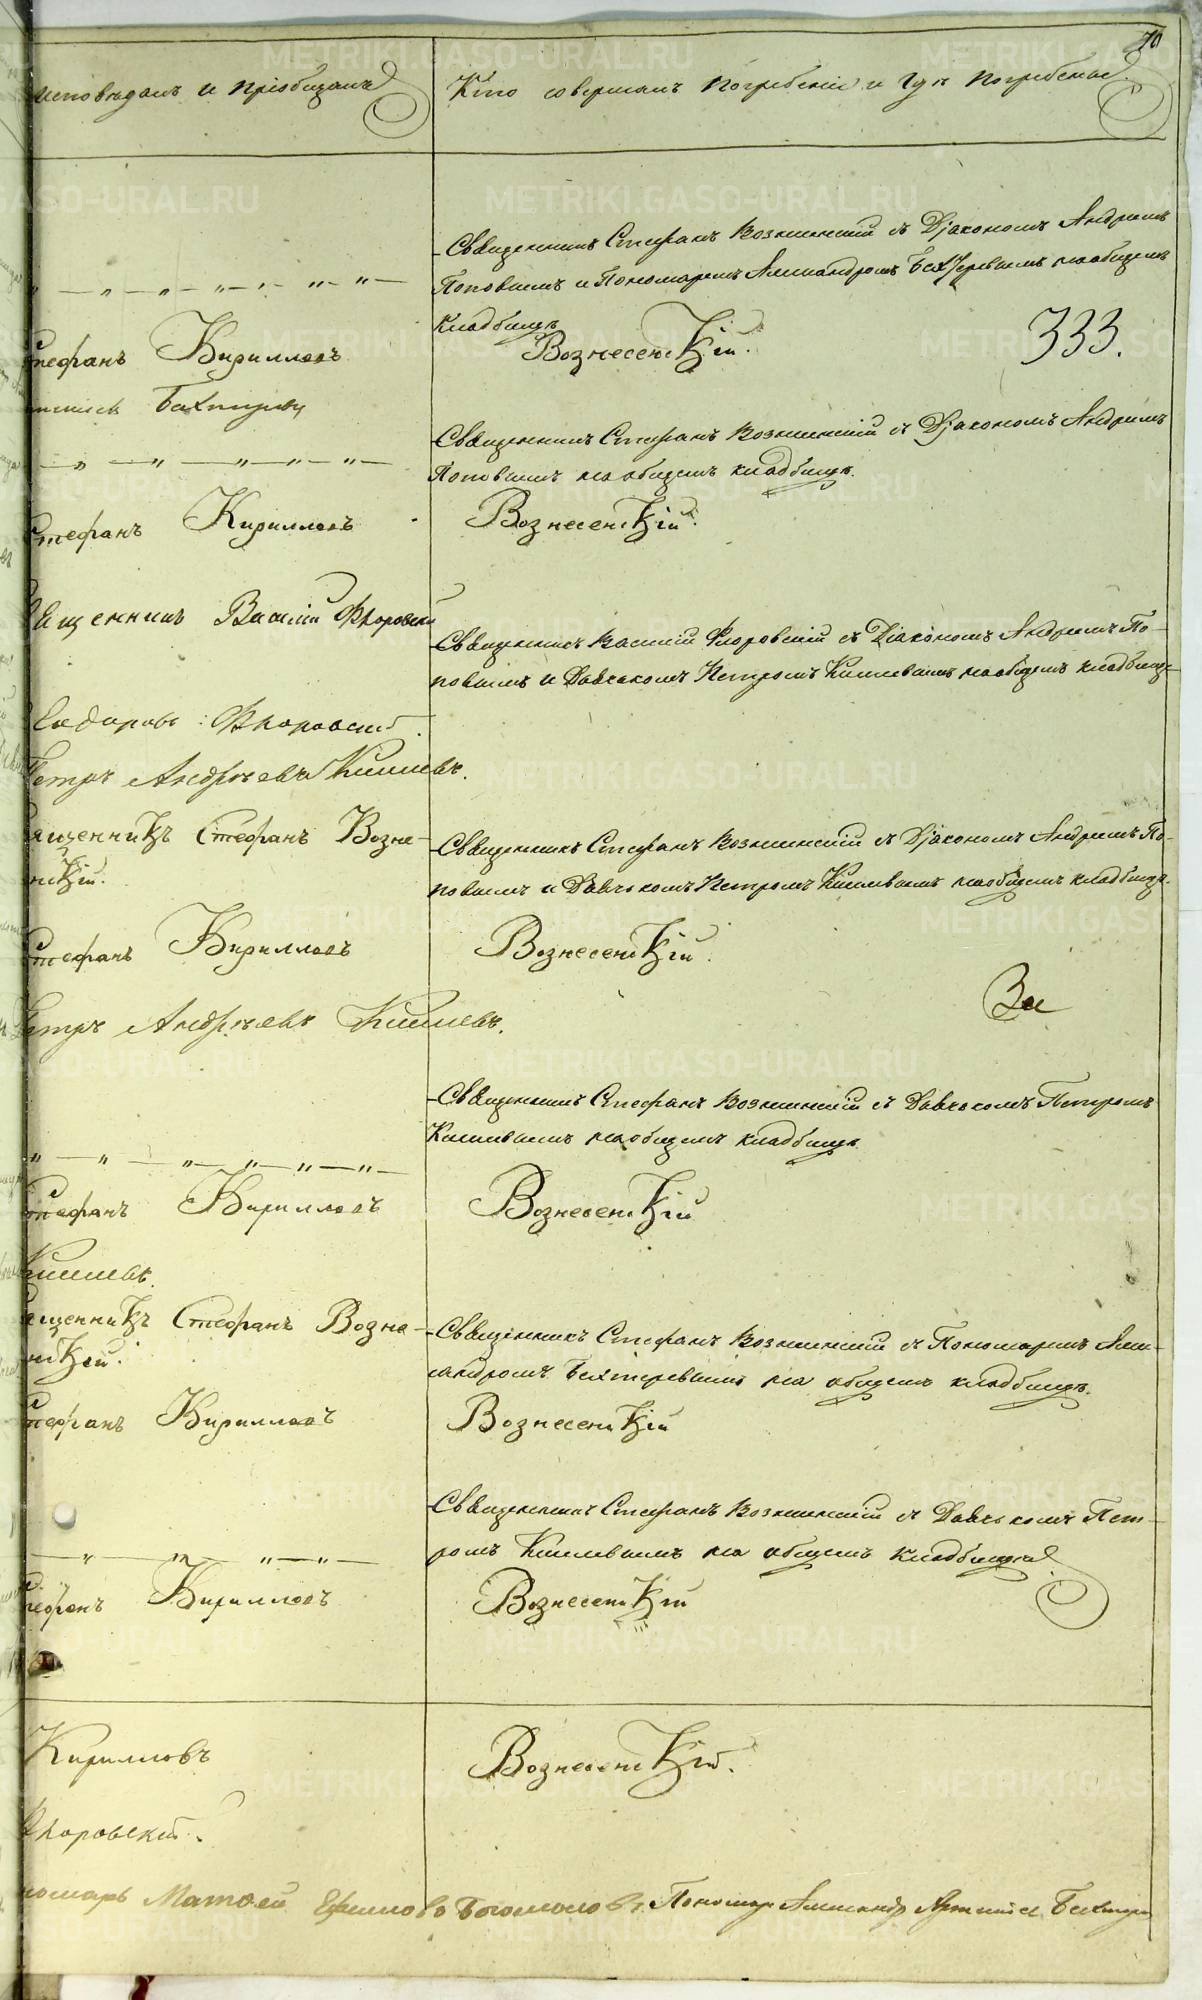 70
исповѣдалъ и пріобщалъ
Кто совершалъ погребеніе и гдѣ погребены.
Священникъ Стефанъ Вознесенскій съ Діакономъ Андреемъ
Поповымъ и Пономаремъ Александромъ Бехтеревымъ на общемъ
кладбищѣ
Стефанъ Кирилловъ
Вознесенскій.
333.
Священникъ Стефанъ Вознесенскій съ Діакономъ Андреемъ
Поповымъ на общемъ кладбищѣ.
Стефанъ Кирилловъ
Вознесенскій.
Священникъ Василій Флоровскій
Священникъ Василій Флоровскій съ Діакономъ Андреемъ По-
повымъ и Дьячкомъ Петромъ Кишевымъ на общемъ кладбищѣ
Флоровскій
Петръ Андреевъ Кишевъ.
Священникъ Стефанъ Возне-
сенскій.
Священникъ Стефанъ Вознесенскій съ Діакономъ Андреемъ По-
повымъ и Дьячкомъ Петромъ Кишевымъ на общемъ кладбищѣ.
Стефанъ Кирилловъ
Вознесенскій.
Петръ Андреевъ Кишевъ.
Священникъ Стефанъ Вознесенскій съ Дьячкомъ Петромъ
Кишевымъ на общемъ кладбищѣ.
Стефанъ Кирилловъ
Вознесенскій
Кишевъ.
Священникъ Стефанъ Возне-
сенскій.
Священникъ Стефанъ Вознесенскій съ Пономаремъ Алек-
сандромъ Бехтеревымъ на общемъ кладбищѣ.
Стефанъ Кирилловъ
Вознесенскій
Священникъ Стефанъ Вознесенскій съ Дьячкомъ Пет-
ромъ Кишевымъ на общемъ кладбищѣ.
Стефанъ Кирилловъ
Вознесенскій
Кирилловъ
Вознесенскій.
Флоровскій.
Пономарь Матвей Ефимовъ Богомоловъ, Пономарь Александръ
METRIKI.GASO-URAL.RU